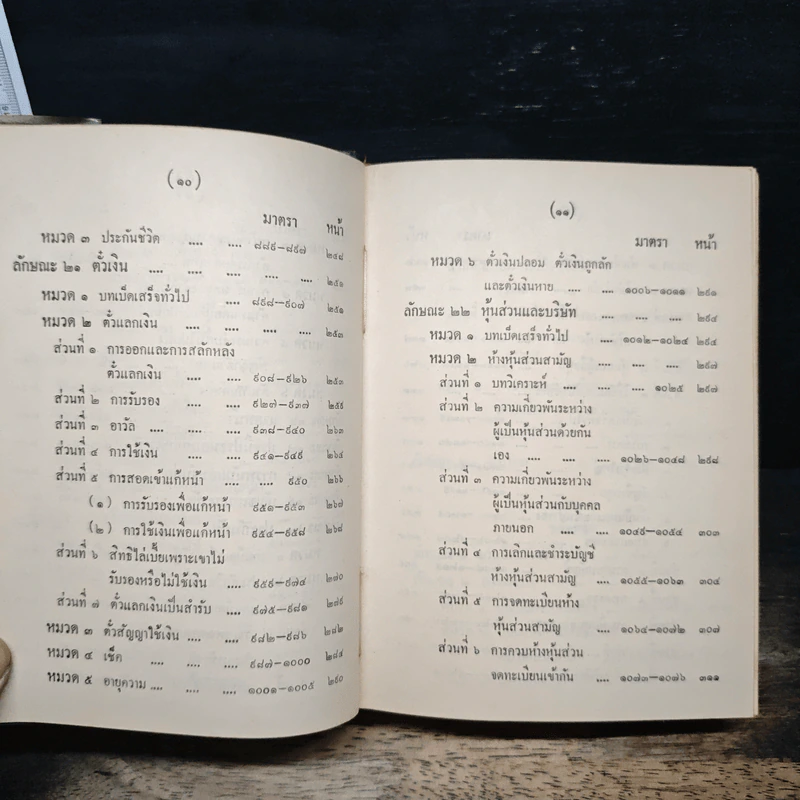 (๑๐)
มาตรา หน้า
หมวด ๓ ประกันชีวิต .... .... ๘๘๙-๘๙๗ ๒๔๘
ลักษณะ ๒๑ ตั๋วเงิน .... .... .... .... .... ๒๕๑
หมวด ๑ บทเบ็ดเสร็จทั่วไป .... ๘๙๘-๙๐๗ ๒๕๑
หมวด ๒ ตั๋วแลกเงิน .... .... .... .... ๒๕๓
ส่วนที่ ๑ การออกและการสลักหลัง
ตั๋วแลกเงิน .... .... ๙๐๘-๙๒๖ ๒๕๓
ส่วนที่ ๒ การรับรอง .... .... ๙๒๗-๙๓๗ ๒๕๙
ส่วนที่ ๓ อาวัล .... .... ๙๓๘-๙๔๐ ๒๖๓
ส่วนที่ ๔ การใช้เงิน .... .... ๙๔๑-๙๔๙ ๒๖๔
ส่วนที่ ๕ การสอดเข้าแก้หน้า .... .... ๙๕๐ ๒๖๖
(๑) การรับรองเพื่อแก้หน้า ๙๕๑-๙๕๓ ๒๖๗
(๒) การใช้เงินเพื่อแก้หน้า ๙๕๔-๙๕๘ ๒๖๘
ส่วนที่ ๖ สิทธิไล่เบี้ยเพราะเขาไม่
รับรองหรือไม่ใช้เงิน .... ๙๕๙-๙๗๔ ๒๗๐
ส่วนที่ ๗ ตั๋วแลกเงินเป็นสำรับ .... ๙๗๕-๙๘๑ ๒๗๙
หมวด ๓ ตั๋วสัญญาใช้เงิน .... .... ๙๘๒-๙๘๖ ๒๘๒
หมวด ๔ เช็ค .... .... .... ๙๘๗-๑๐๐๐ ๒๘๔
หมวด ๕ อายุความ .... .... .... ๑๐๐๑-๑๐๐๕ ๒๙๐
(๑๑)
มาตรา หน้า
หมวด ๖ ตั๋วเงินปลอม ตั๋วเงินถูกลัก
และตั๋วเงินหาย .... .... ๑๐๐๖-๑๐๑๑ ๒๙๑
ลักษณะ ๒๒ หุ้นส่วนและบริษัท .... .... .... ๒๙๔
หมวด ๑ บทเบ็ดเสร็จทั่วไป .... ๑๐๑๒-๑๐๒๔ ๒๙๔
หมวด ๒ ห้างหุ้นส่วนสามัญ .... .... .... ๒๙๗
ส่วนที่ ๑ บทวิเคราะห์ .... .... .... ๑๐๒๕ ๒๙๗
ส่วนที่ ๒ ความเกี่ยวพันระหว่าง
ผู้เป็นหุ้นส่วนด้วยกัน
เอง .... .... .... ๑๐๒๖-๑๐๔๘ ๒๙๘
ส่วนที่ ๓ ความเกี่ยวพันระหว่าง
ผู้เป็นหุ้นส่วนกับบุคคล
ภายนอก .... .... ๑๐๔๙-๑๐๕๔ ๓๐๓
ส่วนที่ ๔ การเลิกและชำระบัญชี
ห้างหุ้นส่วนสามัญ .... ๑๐๕๕-๑๐๖๓ ๓๐๔
ส่วนที่ ๕ การจดทะเบียนห้าง
หุ้นส่วนสามัญ .... ๑๐๖๔-๑๐๗๒ ๓๐๗
ส่วนที่ ๖ การควบห้างหุ้นส่วน
จดทะเบียนเข้ากัน .... ๑๐๗๓-๑๐๗๖ ๓๑๑